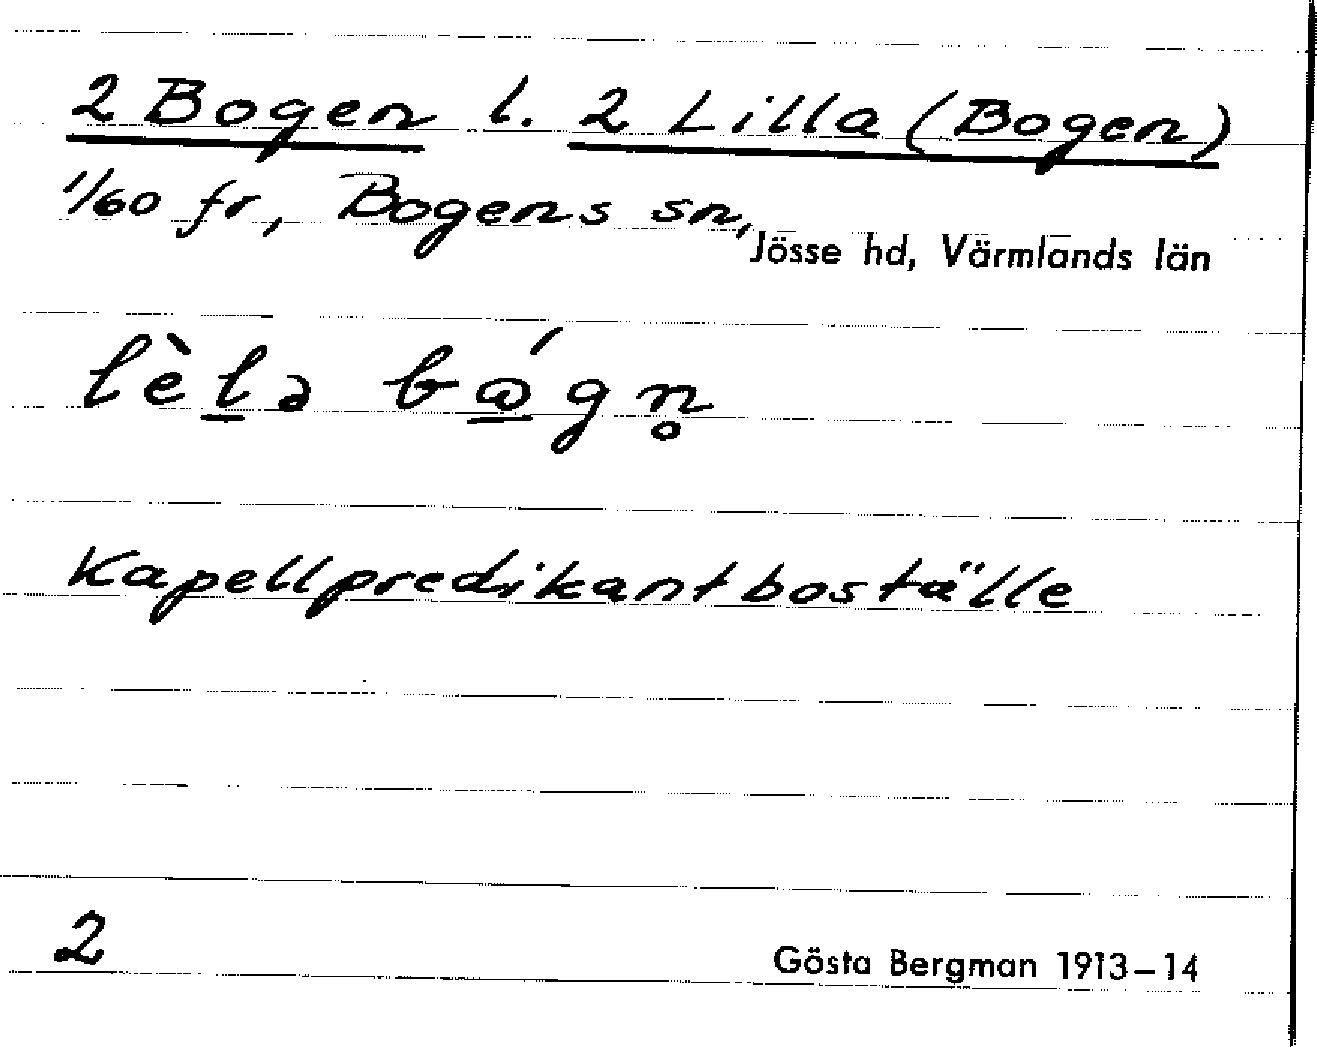 2 Bogen l. 2 Lilla (Bogen)
1/60 fr, Bogens sn, Jösse hd, Värmlands län
lèl̲ə bώ̲gn̥
Kapellpredikantboställe
2 Gösta Bergman 1913–14